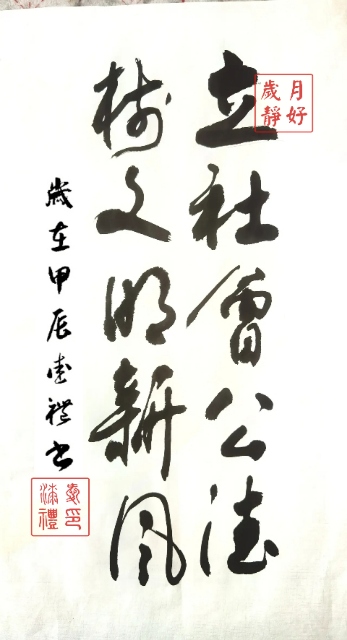 立社會公德
樹文明新風
歲在甲辰禮書
歲月
靜好
漆禮印